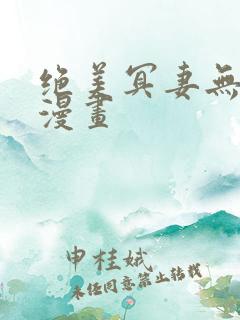 绝美冥妻無
漫畫
申桂娥
未经同意禁止转载